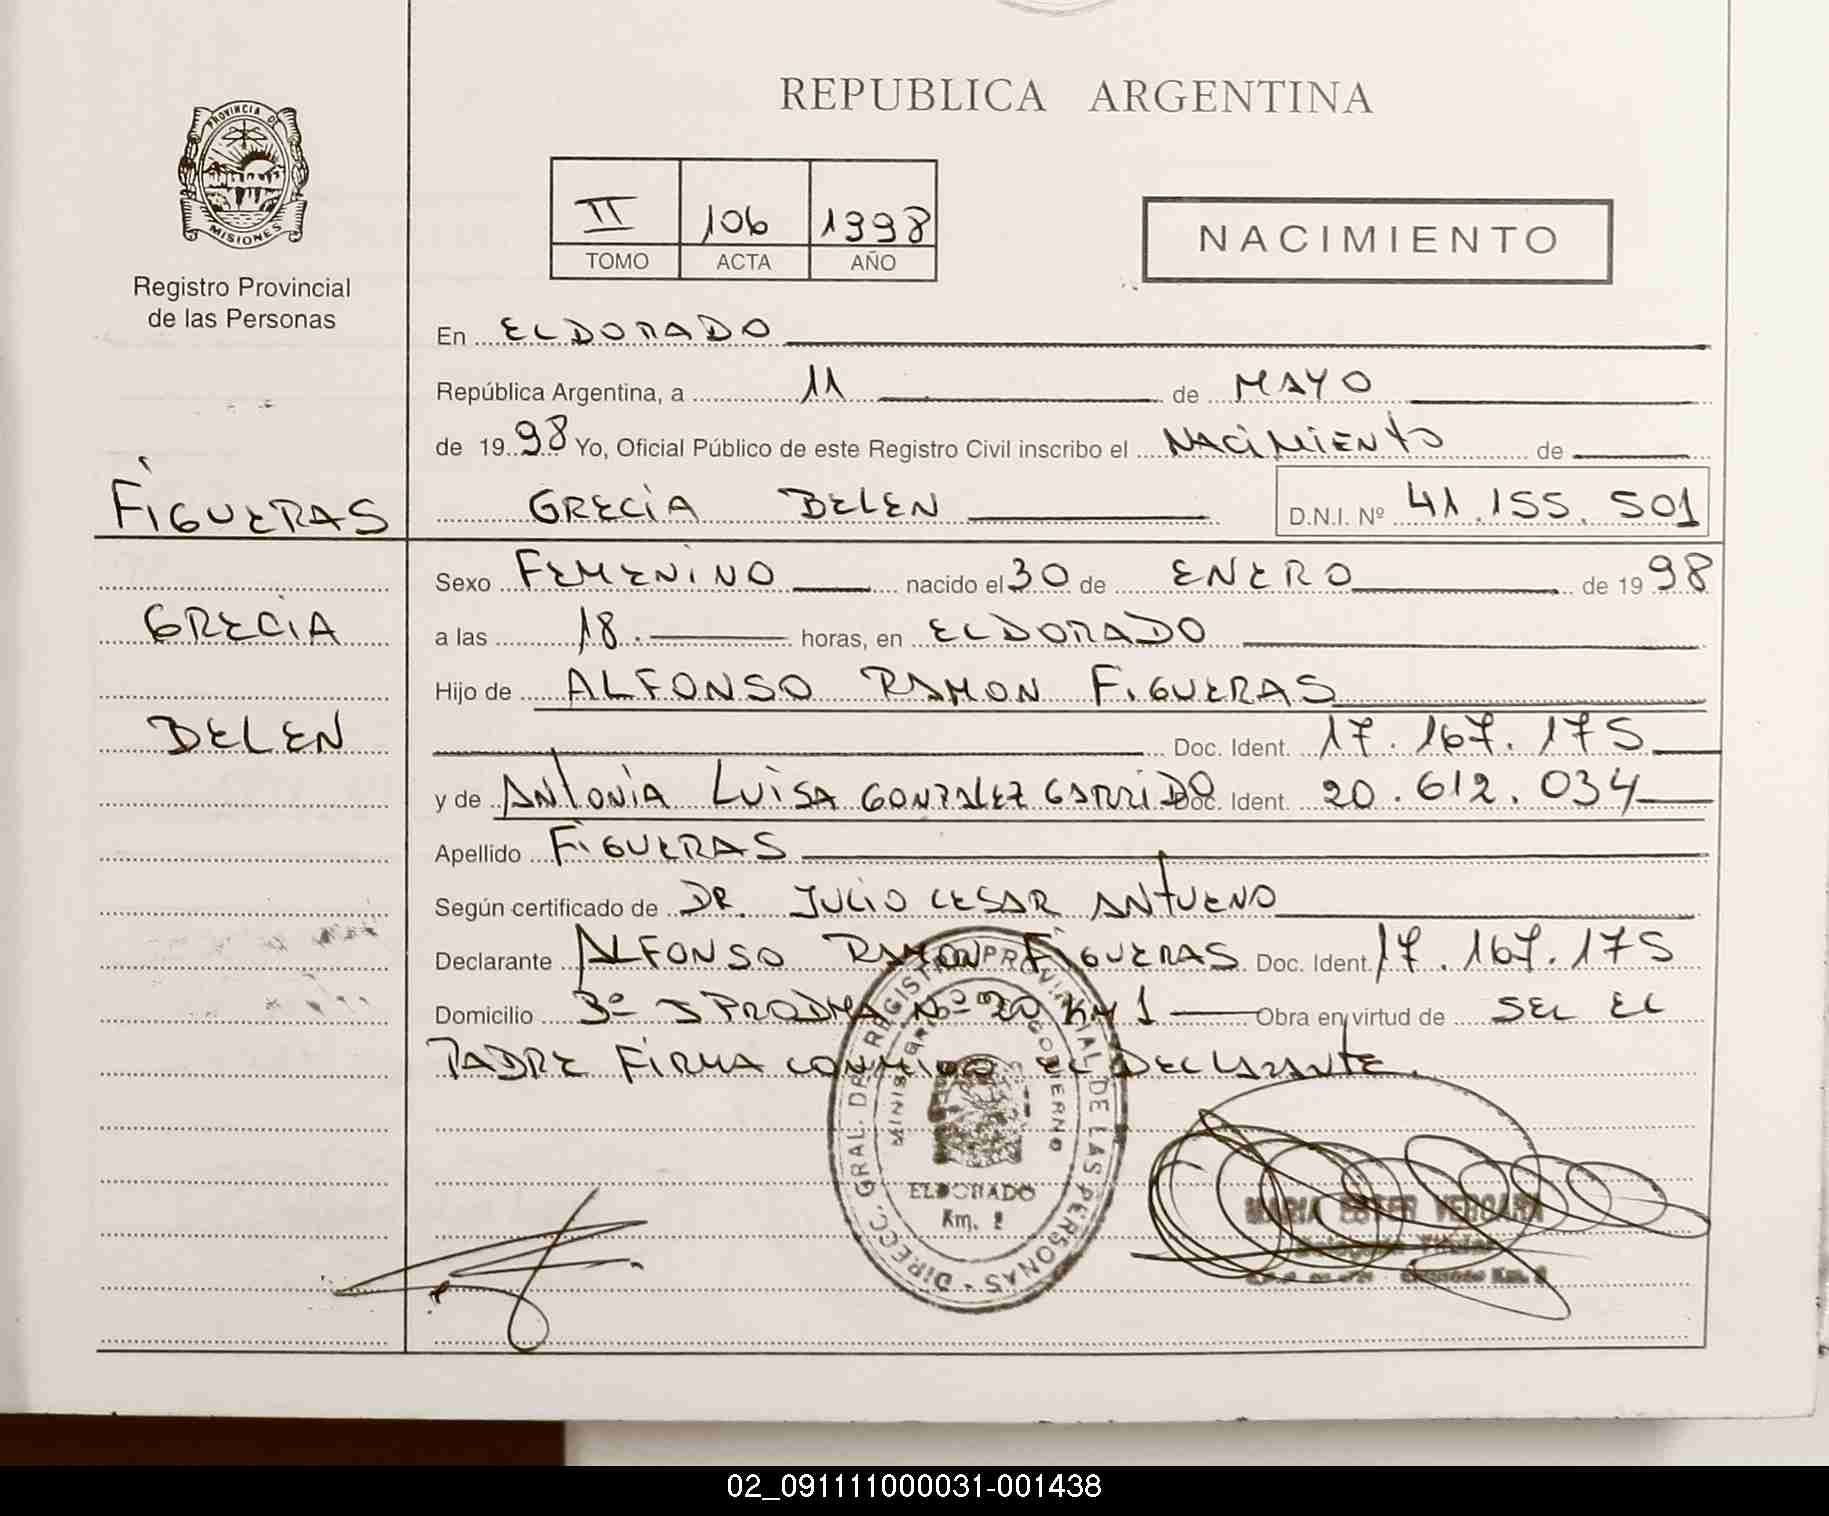 REPUBLICA ARGENTINA
PROVINCIA DE
MISIONES
Registro Provincial
de las Personas
II 106 1998
TOMO ACTA AÑO
NACIMIENTO
En ELDORADO
República Argentina, a 11 de MAYO
de 1998 Yo, Oficial Público de este Registro Civil inscribo el NACIMIENTO de
FIGUERAS
GRECIA BELEN D.N.I. Nº 41.155.501
Sexo FEMENINO nacido el 30 de ENERO de 1998
GRECIA
a las 18. horas, en ELDORADO
Hijo de ALFONSO RAMON FIGUERAS
BELEN
Doc. Ident. 17.167.175
y de ANTONIA LUISA GONZALEZ GARRIDO Doc. Ident. 20.612.034
Apellido FIGUERAS
Según certificado de DR. JULIO CESAR ANTUENO
Declarante ALFONSO RAMON FIGUERAS Doc. Ident. 17.167.175
Domicilio 3º Nº 20 KM 1 Obra en virtud de SER EL
PADRE FIRMA CONMIGO EL DECLARANTE.
DIRECC. GRAL. DE REGISTRO PROVINCIAL DE LAS PERSONAS
MINISTERIO DE GOBIERNO
ELDORADO
Km.
MARIA ESTER VERGARA
Titular
02_091111000031-001438